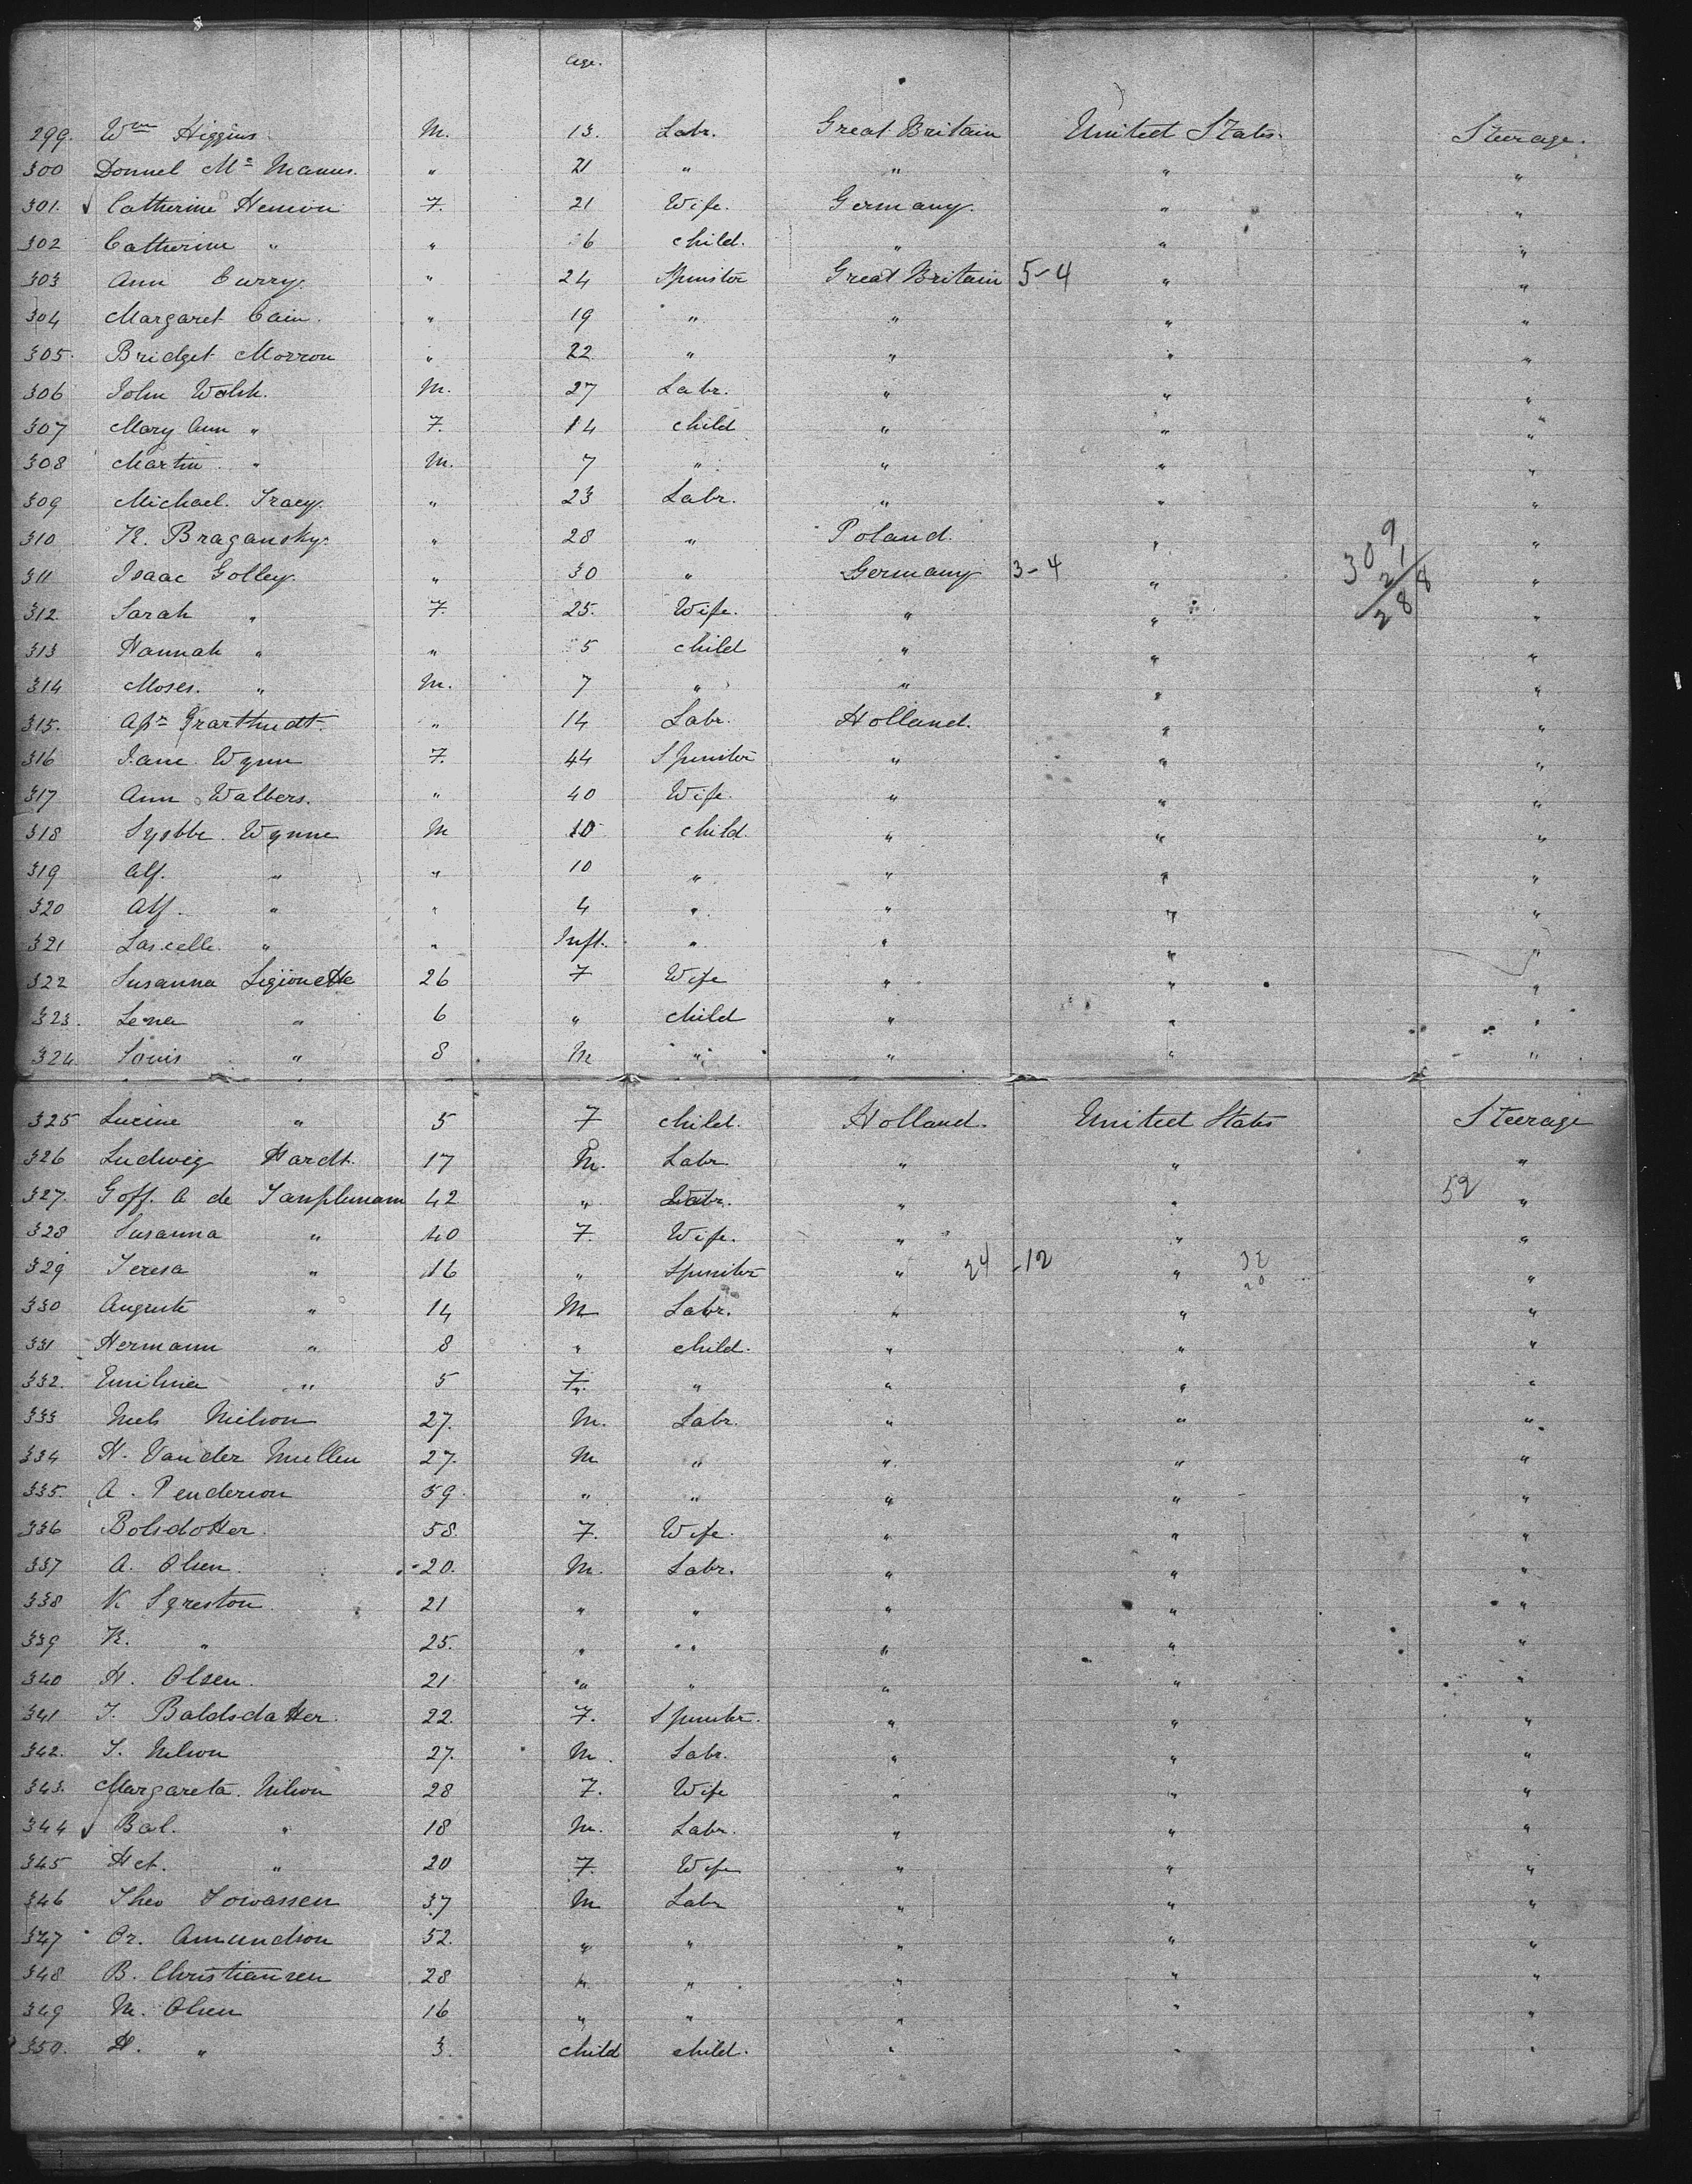 Age.
299. Wm Higgins. M. 13. Labr. Great Britain United States. Steerage.
300 Donnel Mc Manus. " 21 " " " "
301. ✓ Catherine Hemion 7. 21 Wife. Germany. " "
302 Catherine " " 6 child. " " "
303 Ann Curry. " 24 Spinster Great Britain 5-4 " "
304 Margaret Cain. " 19 " " " "
305. Bridget Morron " 22 " " " "
306 John Walsh. M. 27 Labr. " " "
307 Mary Ann " 7. 14 child " " "
308 Martin " M. 7 " " " "
309 Michael. Tracy. " 23 Labr. " " "
310 K. Bragansky. " 28 " Poland. " 309 "
311 Isaac Golley. " 30 " Germany 3-4 " 21 "
312. Sarah " 7. 25. Wife. " " 288 "
313 Hannah " " 5 child " " "
314 Moses. " M. 7 " " " "
315. " 14 Labr. Holland. " "
316 Jane Wynn 7. 44 Spinster " " "
317 Ann Walbers. " 40 Wife " " "
318 Sysbbe Wynne M 10 child. " " "
319 Alf. " " 10 " " " "
320 Alf. " " 4 " " " "
321 Lascelle. " " Inft. " " " "
322 Susanna Ligionette 26 7 Wife " " "
323. Lena " 6 " child " " "
324. Louis " 8 M " " " "
325 Lucine " 5 7 child. Holland. United States Steerage
326 Ludwig Hardt. 17 M. Labr. " " "
327. Goff. A de 42 " Labr. " " 52 "
328 Susanna " 40 7. Wife. " " "
329 Teresa " 16 " Spinster " 24 -12 " 32 20 "
330 Auguste " 14 M Labr. " " "
331 Hermann " 8 " child. " " "
332. Emilina " 5 7. " " " "
333 Nels Nilson 27. M. Labr. " " "
334 H. Van der Mullen 27. M " " " "
335. A. Penderson 59. " " " " "
336 Bolsdotter. 58. 7. Wife. " " "
337 A. Olsen. 20. M. Labr. " " "
338 K Sgreston. 21 " " " " "
339 K. " 25. " " " " "
340 H. Olsen. 21 " " " " "
341 T. Baldsdatter. 22. 7. Spinster. " " "
342. T. Nilson 27. M. Labr. " " "
343. Margareta. Nilson 28 7. Wife " " "
344 ✓ Bal. " 18 M. Labr. " " "
345 Het. " 20 7. Wife " " "
346 Theo Towassen 37 M Labr " " "
347 Or. Amundson 52. " " " " "
348 B. Christiansen 28 " " " " "
349 M. Olsen 16 " " " " "
350. H. " 3. child child. " " "